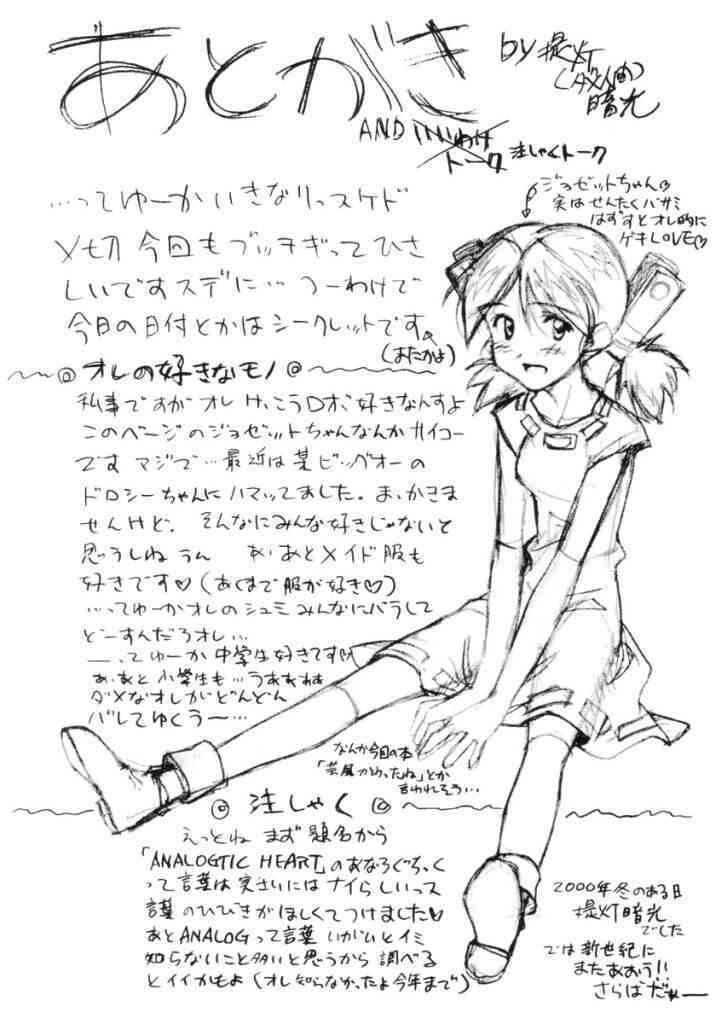 あとがき
by 提灯
(ダメ人間)
暗光
AND
トーク 注しゃくトーク
ジョゼットちゃん♡
実はせんたくバサミ
はずすとオレ的に
ゲキLOVE♡
…ってゆーかいきなりっスケド
〆切今回もブッチギってひさ
しいですスデに… つーわけで
今日の日付とかはシークレットです。
(またかよ)
◎ オレの好きなモノ ◎
私事ですがオレ けっこうロボ好きなんすよ
このページのジョゼットちゃんなんかサイコー
です マジで…最近は某ビッグオーの
ドロシーちゃんにハマッてました。ま、かきま
せんけど。 そんなにみんな好きじゃないと
思うしね うん あ、あとメイド服も
好きです♡(あくまで服が好き♡)
…ってゆーかオレのシュミみんなにバラして
どーすんだろオレ…
――ってゆーか中学生好きです♡
あ、あと小学生も…うああああ
ダメなオレがどんどん
バレてゆくう〜…
なんか今回の本
「芸風かわったね」とか
言われそう…
◎ 注しゃく ◎
えっとね まず題名から
「ANALOGTIC HEART」のあなろぐちっく
って言葉は実さいにはナイらしいっス
言葉のひびきがほしくてつけました♡
あとANALOGって言葉 いがいとイミ
知らないこと多いと思うから 調べてる
とイイかもよ(オレ知らなかったよ今年まで)
2000年冬のある日
提灯暗光
でした
では新世紀に
またあおう!!
さらばだぁー